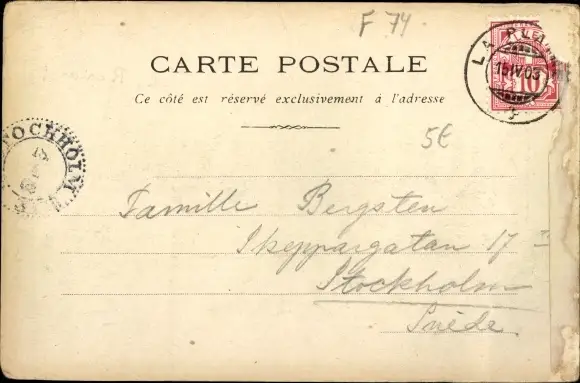 F 74
CARTE POSTALE
Ce côté est réservé exclusivement à l'adresse
LA PLAINE
15 IV 03
10
5€
STOCKHOLM
Famille Bergsten
Skeppargatan 17
Stockholm
Suède.